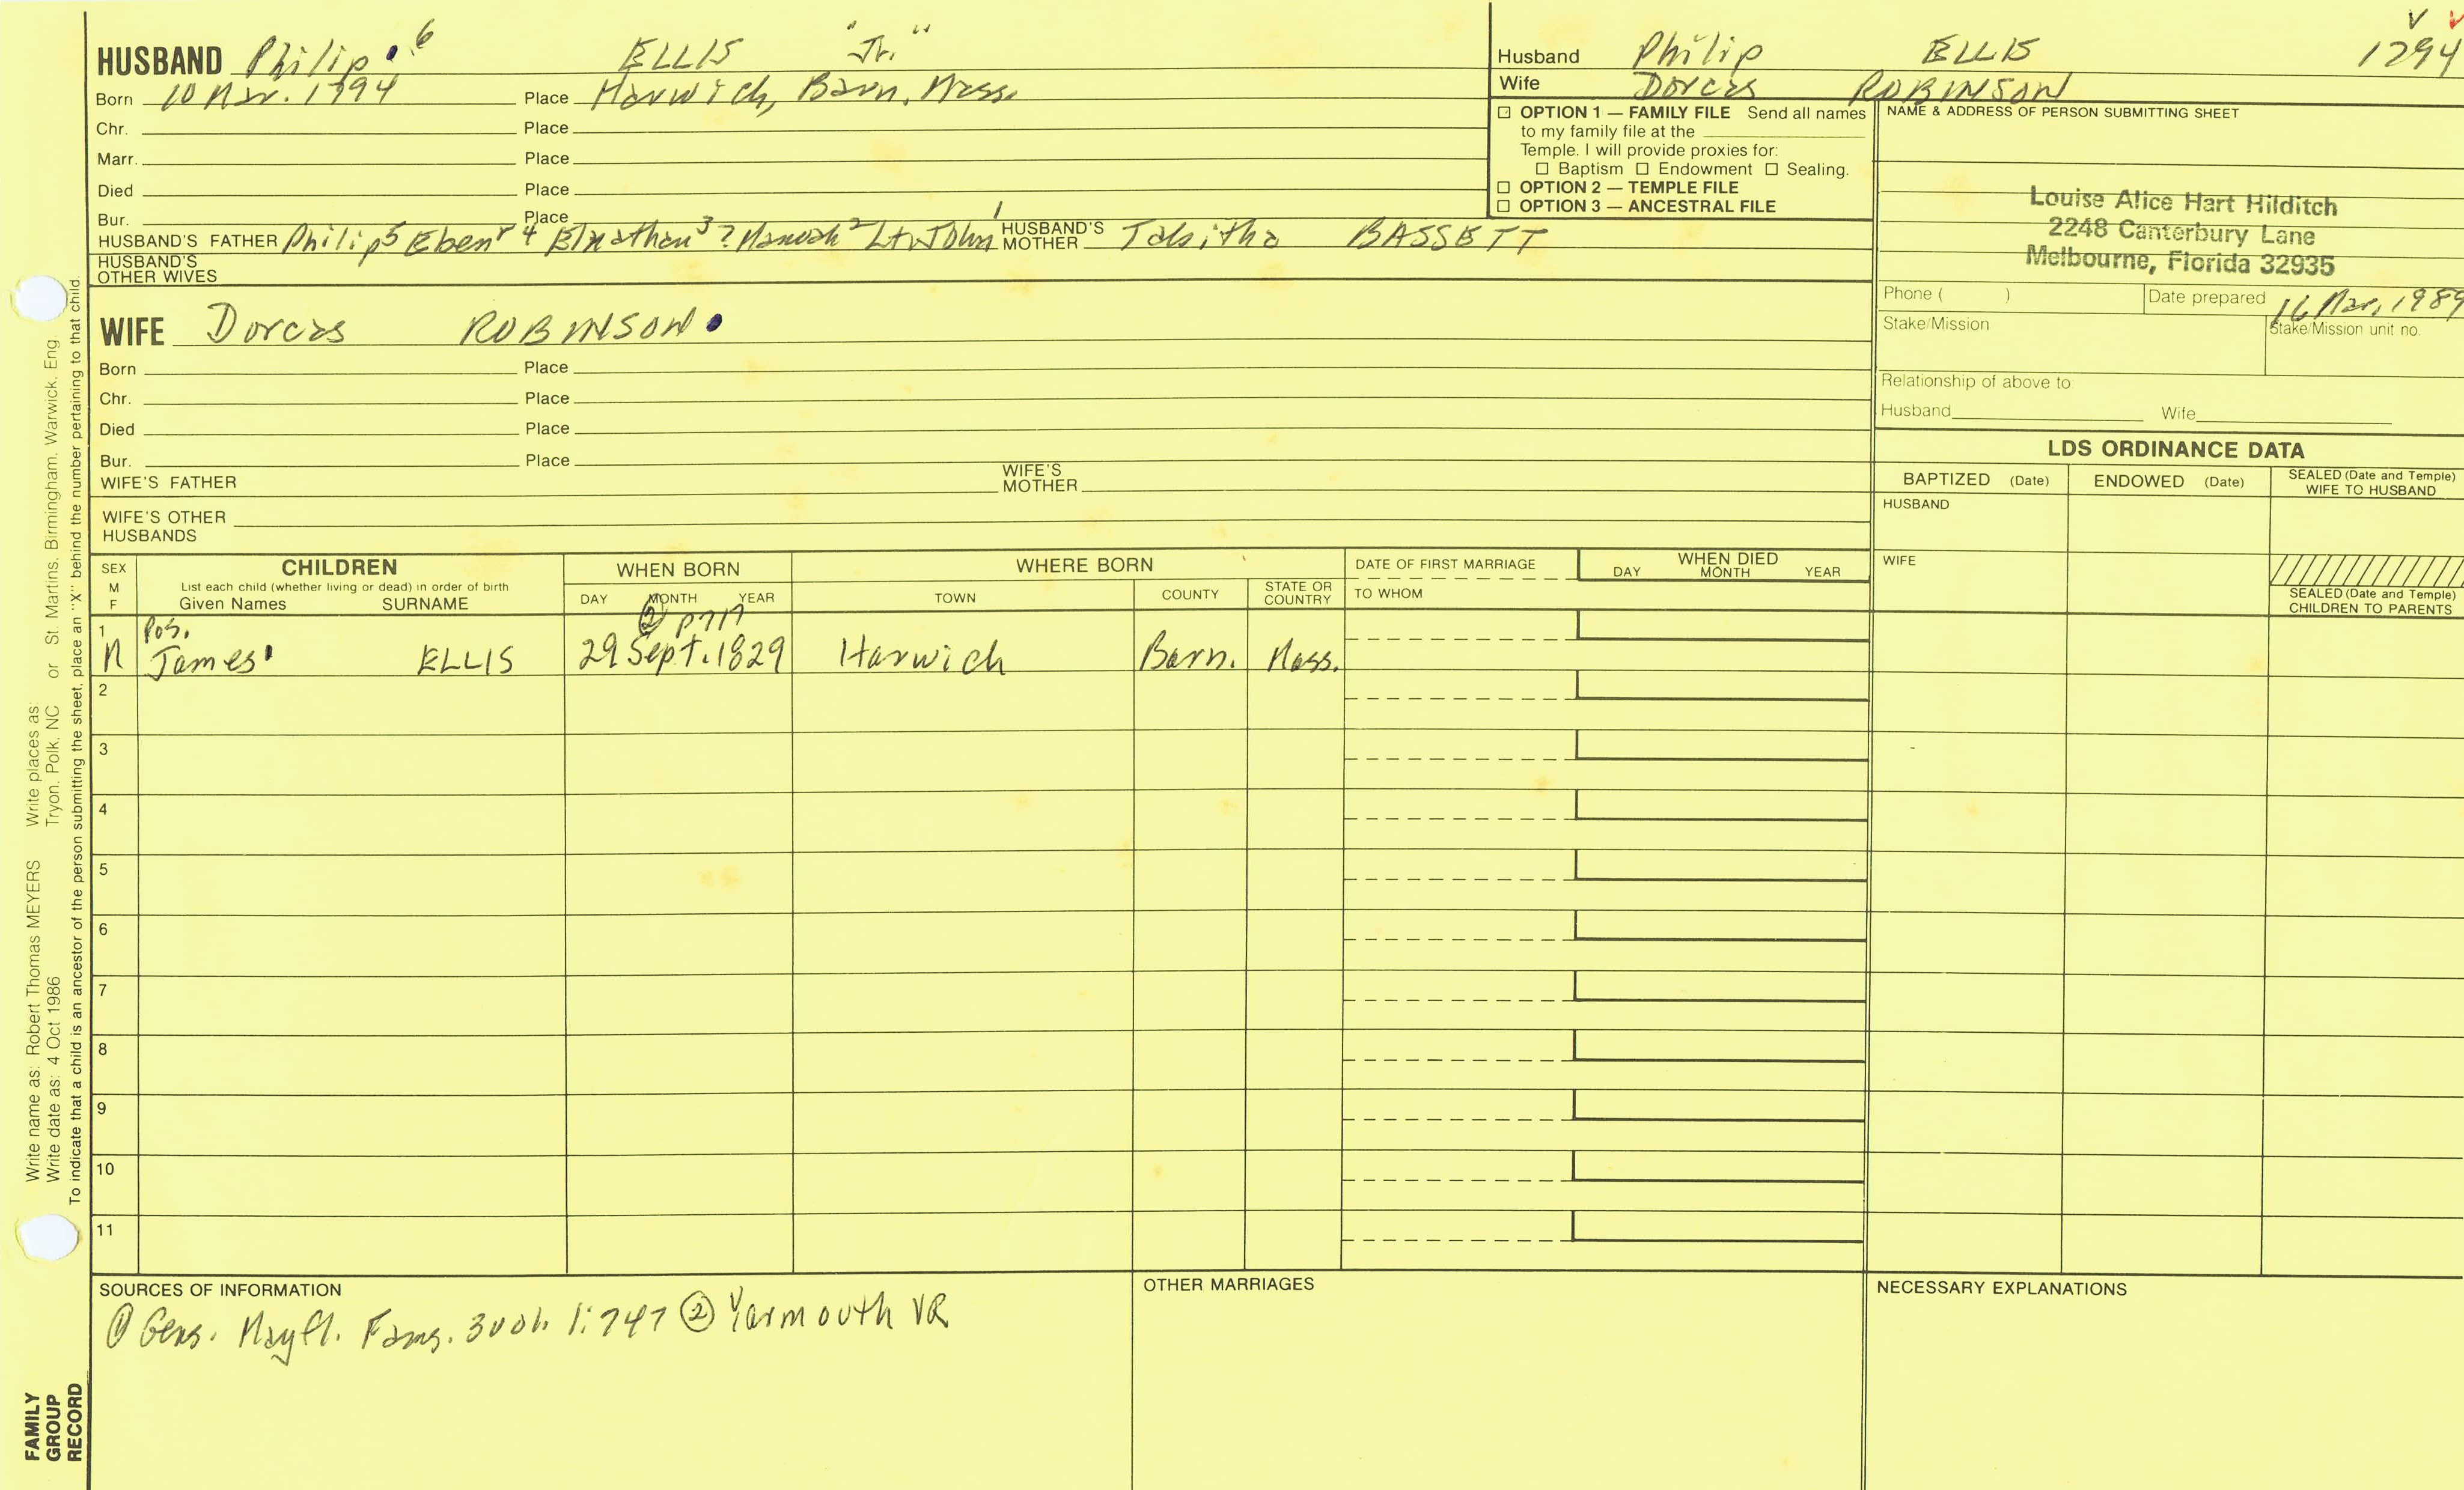 HUSBAND Philip 6 ELLIS "Jr."
Born 10 Mar. 1794 Place Harwich, Barn. Mass.
Chr. Place
Marr. Place
Died Place
Bur. Place
HUSBAND'S FATHER Philip 5 Eben r 4 Elnathan 3 ? Manoah 2 Lt. John 1 HUSBAND'S MOTHER Tabitha BASSETT
HUSBAND'S OTHER WIVES
WIFE Dorcas ROBINSON
Born Place
Chr. Place
Died Place
Bur. Place
WIFE'S FATHER WIFE'S MOTHER
WIFE'S OTHER HUSBANDS
Husband Philip ELLIS 1794
Wife Dorcas ROBINSON
☐ OPTION 1 — FAMILY FILE Send all names
to my family file at the
Temple. I will provide proxies for:
☐ Baptism ☐ Endowment ☐ Sealing.
☐ OPTION 2 — TEMPLE FILE
☐ OPTION 3 — ANCESTRAL FILE
NAME & ADDRESS OF PERSON SUBMITTING SHEET
Louise Alice Hart Hilditch
2248 Canterbury Lane
Melbourne, Florida 32935
Phone ( ) Date prepared 16 Mar, 1989
Stake/Mission Stake/Mission unit no.
Relationship of above to:
Husband Wife
LDS ORDINANCE DATA
BAPTIZED (Date) ENDOWED (Date) SEALED (Date and Temple) WIFE TO HUSBAND
HUSBAND
WIFE
SEALED (Date and Temple) CHILDREN TO PARENTS
SEX M F
CHILDREN
List each child (whether living or dead) in order of birth
Given Names SURNAME
WHEN BORN
DAY MONTH YEAR
WHERE BORN
TOWN COUNTY STATE OR COUNTRY
DATE OF FIRST MARRIAGE
TO WHOM
WHEN DIED
DAY MONTH YEAR
1 Pos. ②
M James ELLIS 29 Sept. 1829 Harwich Barn. Mass.
2
3
4
5
6
7
8
9
10
11
SOURCES OF INFORMATION
① Gens. Mayfl. Fams. 1:747 ② Yarmouth VR
OTHER MARRIAGES
NECESSARY EXPLANATIONS
Write name as: Robert Thomas MEYERS Write places as:
Write date as: 4 Oct 1986 Tryon, Polk, NC or St. Martins, Birmingham, Warwick, Eng.
To indicate that a child is an ancestor of the person submitting the sheet, place an "X" behind the number pertaining to that child.
FAMILY
GROUP
RECORD